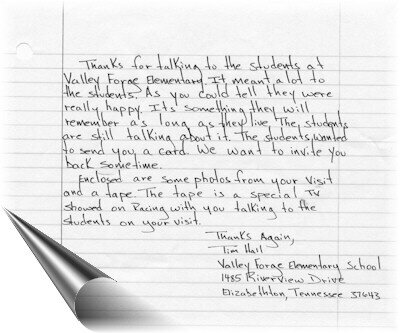 Thanks for talking to the students at
Valley Forge Elementary. It meant a lot to
the students. As you could tell they were
really happy. Its something they will
remember as long as they live. The students
are still talking about it. The students wanted
to send you a card. We want to invite you
back sometime.
Enclosed are some photos from your visit
and a tape. The tape is a special TV
showed on Racing with you talking to the
students on your visit.
Thanks Again,
Tim Hall
Valley Forge Elementary School
1485 Riverview Drive
Elizabethton, Tennessee 37643